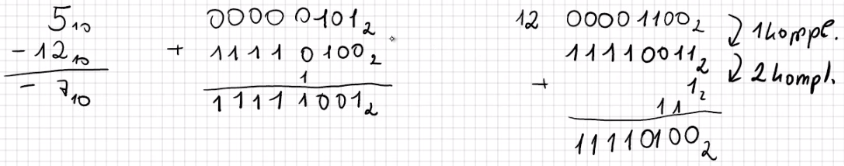 5₁₀
- 12₁₀
- 7₁₀
0000 0101₂
+ 1111 0100₂
1
1111 1001₂
12 0000 1100₂
1 kompl.
1111 0011₂
2 kompl.
+ 1₂
1 1
1111 0100₂